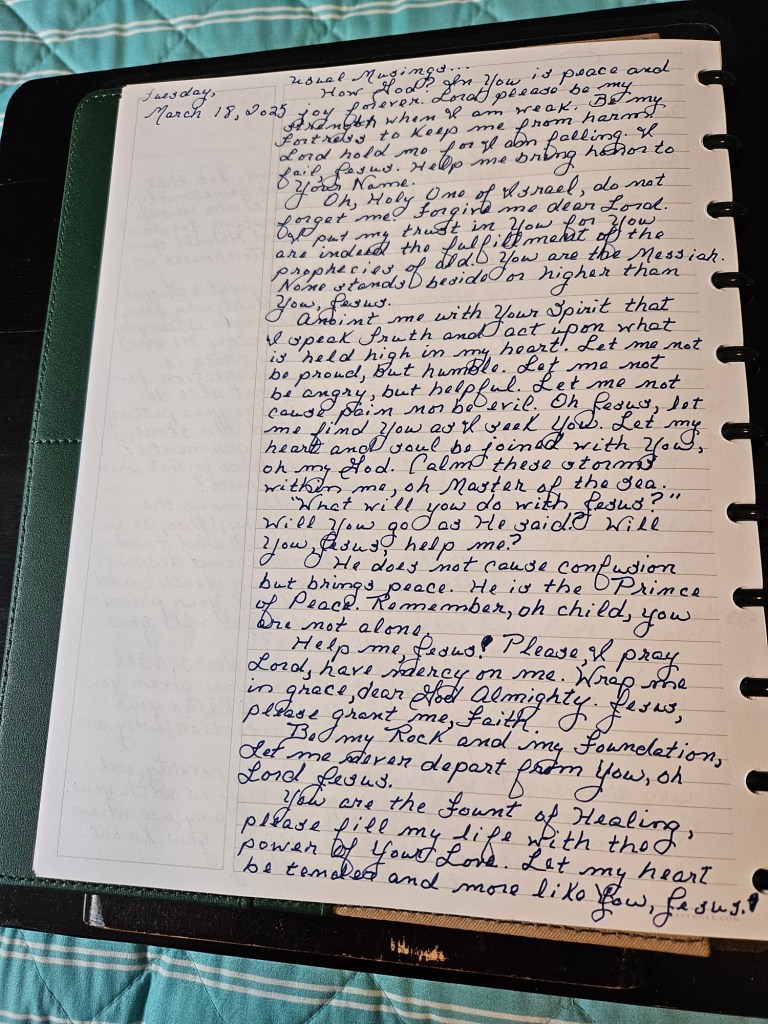 Usual Musings...
Tuesday,
March 18, 2025
How God? In You is peace and
joy forever. Lord please be my
strength when I am weak. Be my
Fortress to keep me from harm.
Lord hold me for I am falling. I
fail, Jesus. Help me bring honor to
Your Name.
Oh, Holy One of Israel, do not
forget me. Forgive me dear Lord.
I put my trust in You for You
are indeed the fulfillment of the
prophecies of old. You are the Messiah.
None stands beside or higher than
You, Jesus.
Anoint me with Your Spirit that
I speak Truth and act upon what
is held high in my heart. Let me not
be proud, but humble. Let me not
be angry, but helpful. Let me not
cause pain nor be evil. Oh Jesus, let
me find You as I seek You. Let my
heart and soul be joined with You,
oh my God. Calm these storms
within me, oh Master of the Sea.
"What will you do with Jesus?"
Will you go as He said? Will
You, Jesus, help me?
He does not cause confusion
but brings peace. He is the Prince
of Peace. Remember, oh child, you
are not alone.
Help me, Jesus! Please, I pray
Lord, have mercy on me. Wrap me
in grace, dear God Almighty. Jesus,
please grant me, Faith.
Be my Rock and my Foundation,
Let me never depart from You, oh
Lord Jesus.
You are the Fount of Healing,
please fill my life with the
power of Your Love. Let my heart
be tender and more like You, Jesus.